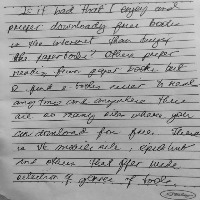 Is it bad that I enjoy and
prefer downloading free books
in the internet than buying
the paperbooks? Others prefer
reading from paper books but
I find e-books easier to read
anytime and anywhere. There
are so many sites where you
can download for free. There
is
and others that offer wide
selection of genres of books.